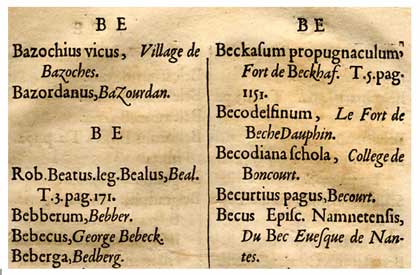 B E
Bazochius vicus, Village de
Bazoches.
Bazordanus, BaZourdan.
B E
Rob. Beatus. leg. Bealus, Beal.
T. 3. pag. 171.
Bebberum, Bebber.
Bebecus, George Bebeck.
Beberga, Bedberg.
B E
Beckaſum propugnaculum,
Fort de Beckhaf. T. 5. pag.
1151.
Becodelfinum, Le Fort de
BecheDauphin.
Becodiana ſchola, College de
Boncourt.
Becurtius pagus, Becourt.
Becus Epiſc. Namnetenſis,
Du Bec Eueſque de Nan-
tes.